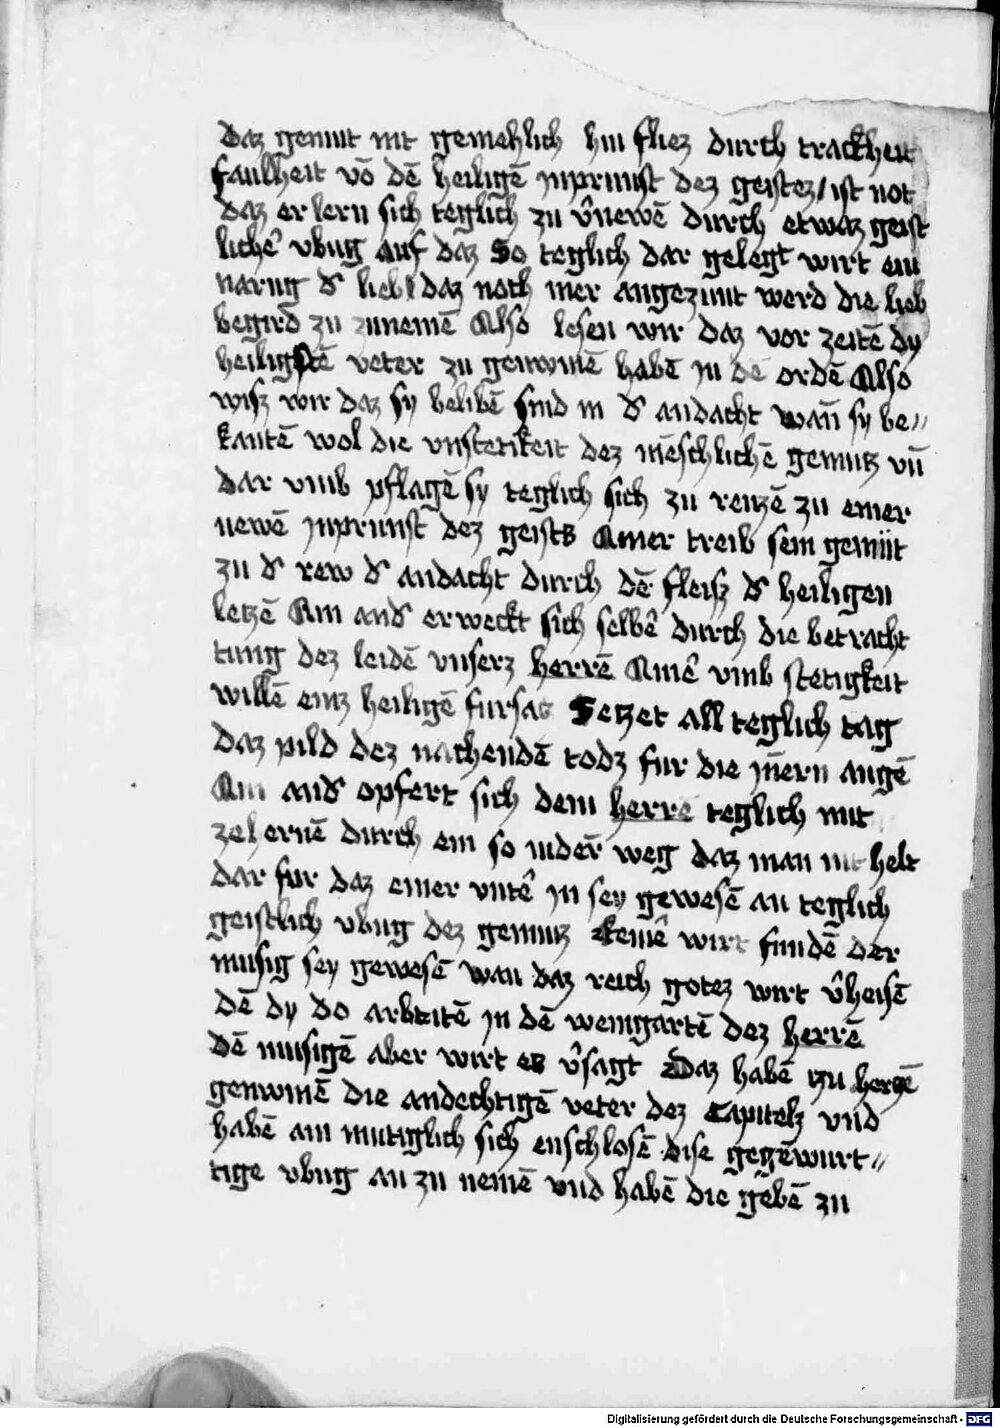 daz gemut nit gemehlich hin fliez durch trackheit
faulheit vō dē heiligē jnprunst dez geistez / ist not
daz er lern sich teglich zu v̂newē durch etwaz geist
lichē vbūg auf daz So teglich dar gelegt wirt ein
narūg d͛ lieb daz noch mer angezünt werd die lieb
begird zu zunemē Also lesen wir daz vor zeitē dy
heiligstē veter zu genwinē habē jn dē ordē Also
wisz wir daz sy belibē sind in d͛ andacht wān sy be〃
kantē wol die vnstetikeit dez mēschlichē gemutz vn̄
dar vmb pflagē sy teglich sich zu reitzē zu einer
newē jnprunst dez geists Ainer treib sein gemüt
zu d͛ rew d͛ andacht durch dē fleisz d͛ heiligen
letzē Ain and͛ erweckt sich selbē durch die betracht
tung dez leidē vnserz herrē Ainē vmb stetigkeit
willē einz heiligē fursatz Setzet all teglich tag
daz pild dez nachendē todz fur die jn̄ern augē
Ain and͛ opfert sich dem herrē teglich mit
zehernē durch ein so nider̄ weg daz man nit helt
dar fur daz einer vntē jn sey gewesē an teglich
geistlich vbūg dez gemutz keinē wirt fundē der
musig sey gewesē wan daz reich gotez wirt v̂heisē
dē dy do arbeitē jn dē weingartē dez herrē
dē musigē aber wirt es v̂sagt Daz habē tzu hertzē
genwinē die andechtigē veter dez Capitelz vnd
habē ain mutiglich sich enschlosē dise gegēwurt〃
tige vbūg an zu nemē vnd habē die gebē zu
Digitalisierung gefördert durch die Deutsche Forschungsgemeinschaft - DFG